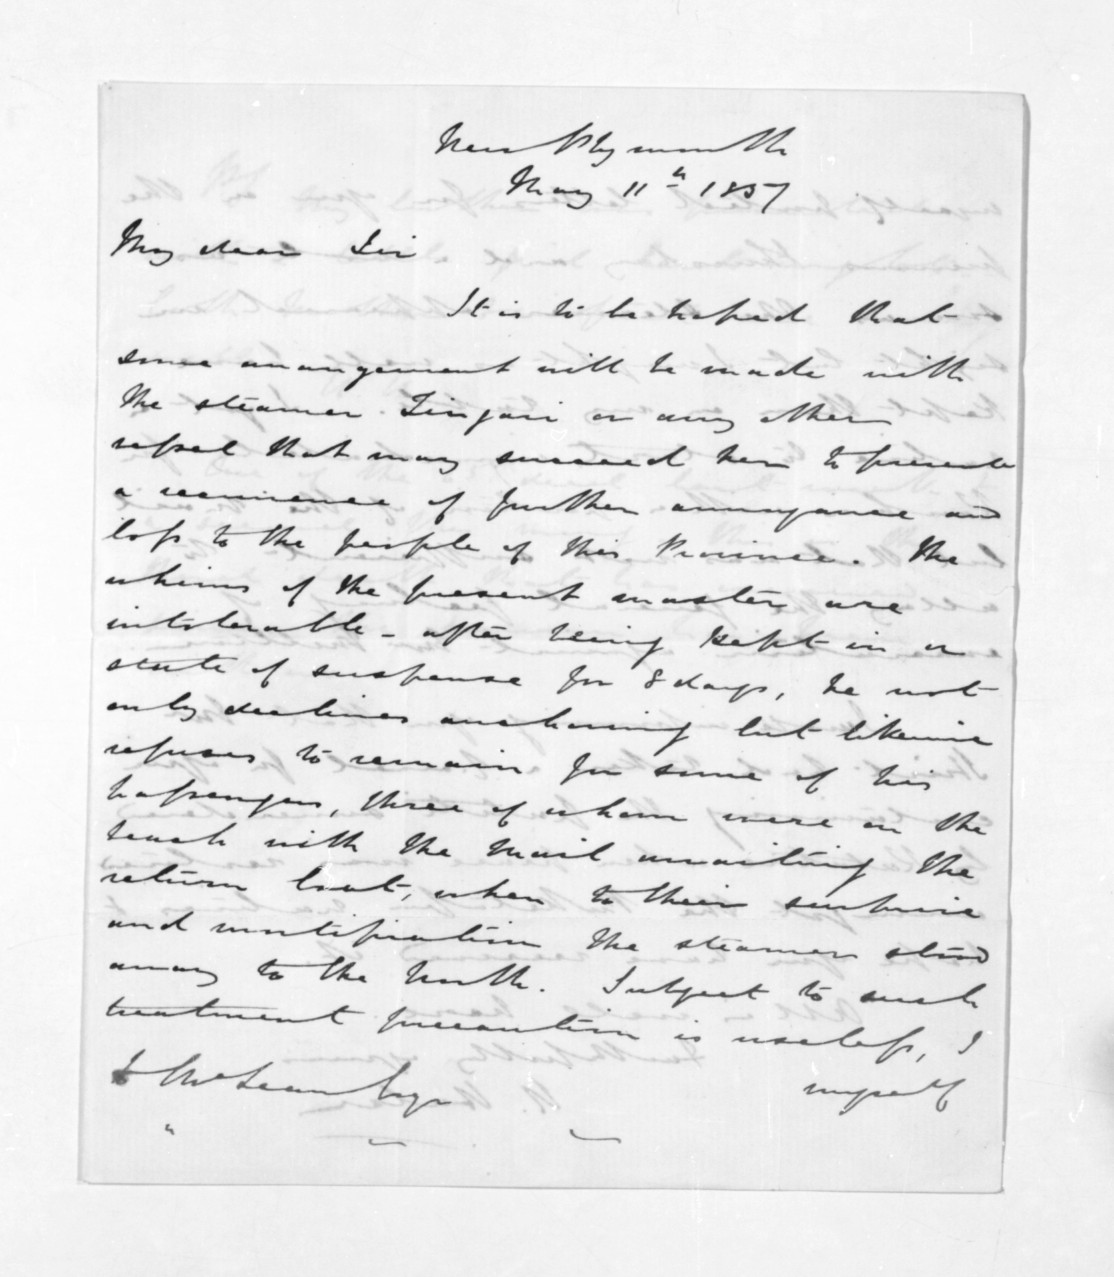 New Plymouth
May 11th 1857
My dear Sir
It is to be hoped that
some arrangement will be made with
the steamer Zingari or any other
vessel that may succeed her to prevent
a recurrence of further annoyance and
loss to the people of this Province. The
whims of the present master are
intolerable - after being kept in a
state of suspense for 8 days, he not
only declines anchoring but likewise
refuses to remain for some of his
passengers, three of whom were on the
beach with the Mail awaiting the
return boat, when to their surprise
and mortification the steamer stood
away to the North. Subject to such
treatment precaution is useless, I
McLean Esqr
myself